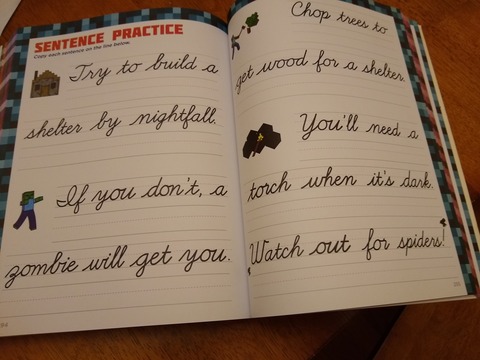 SENTENCE PRACTICE
Copy each sentence on the line below.
Try to build a
shelter by nightfall.
If you don't, a
zombie will get you.
94
Chop trees to
get wood for a shelter.
You'll need a
torch when it's dark.
Watch out for spiders!